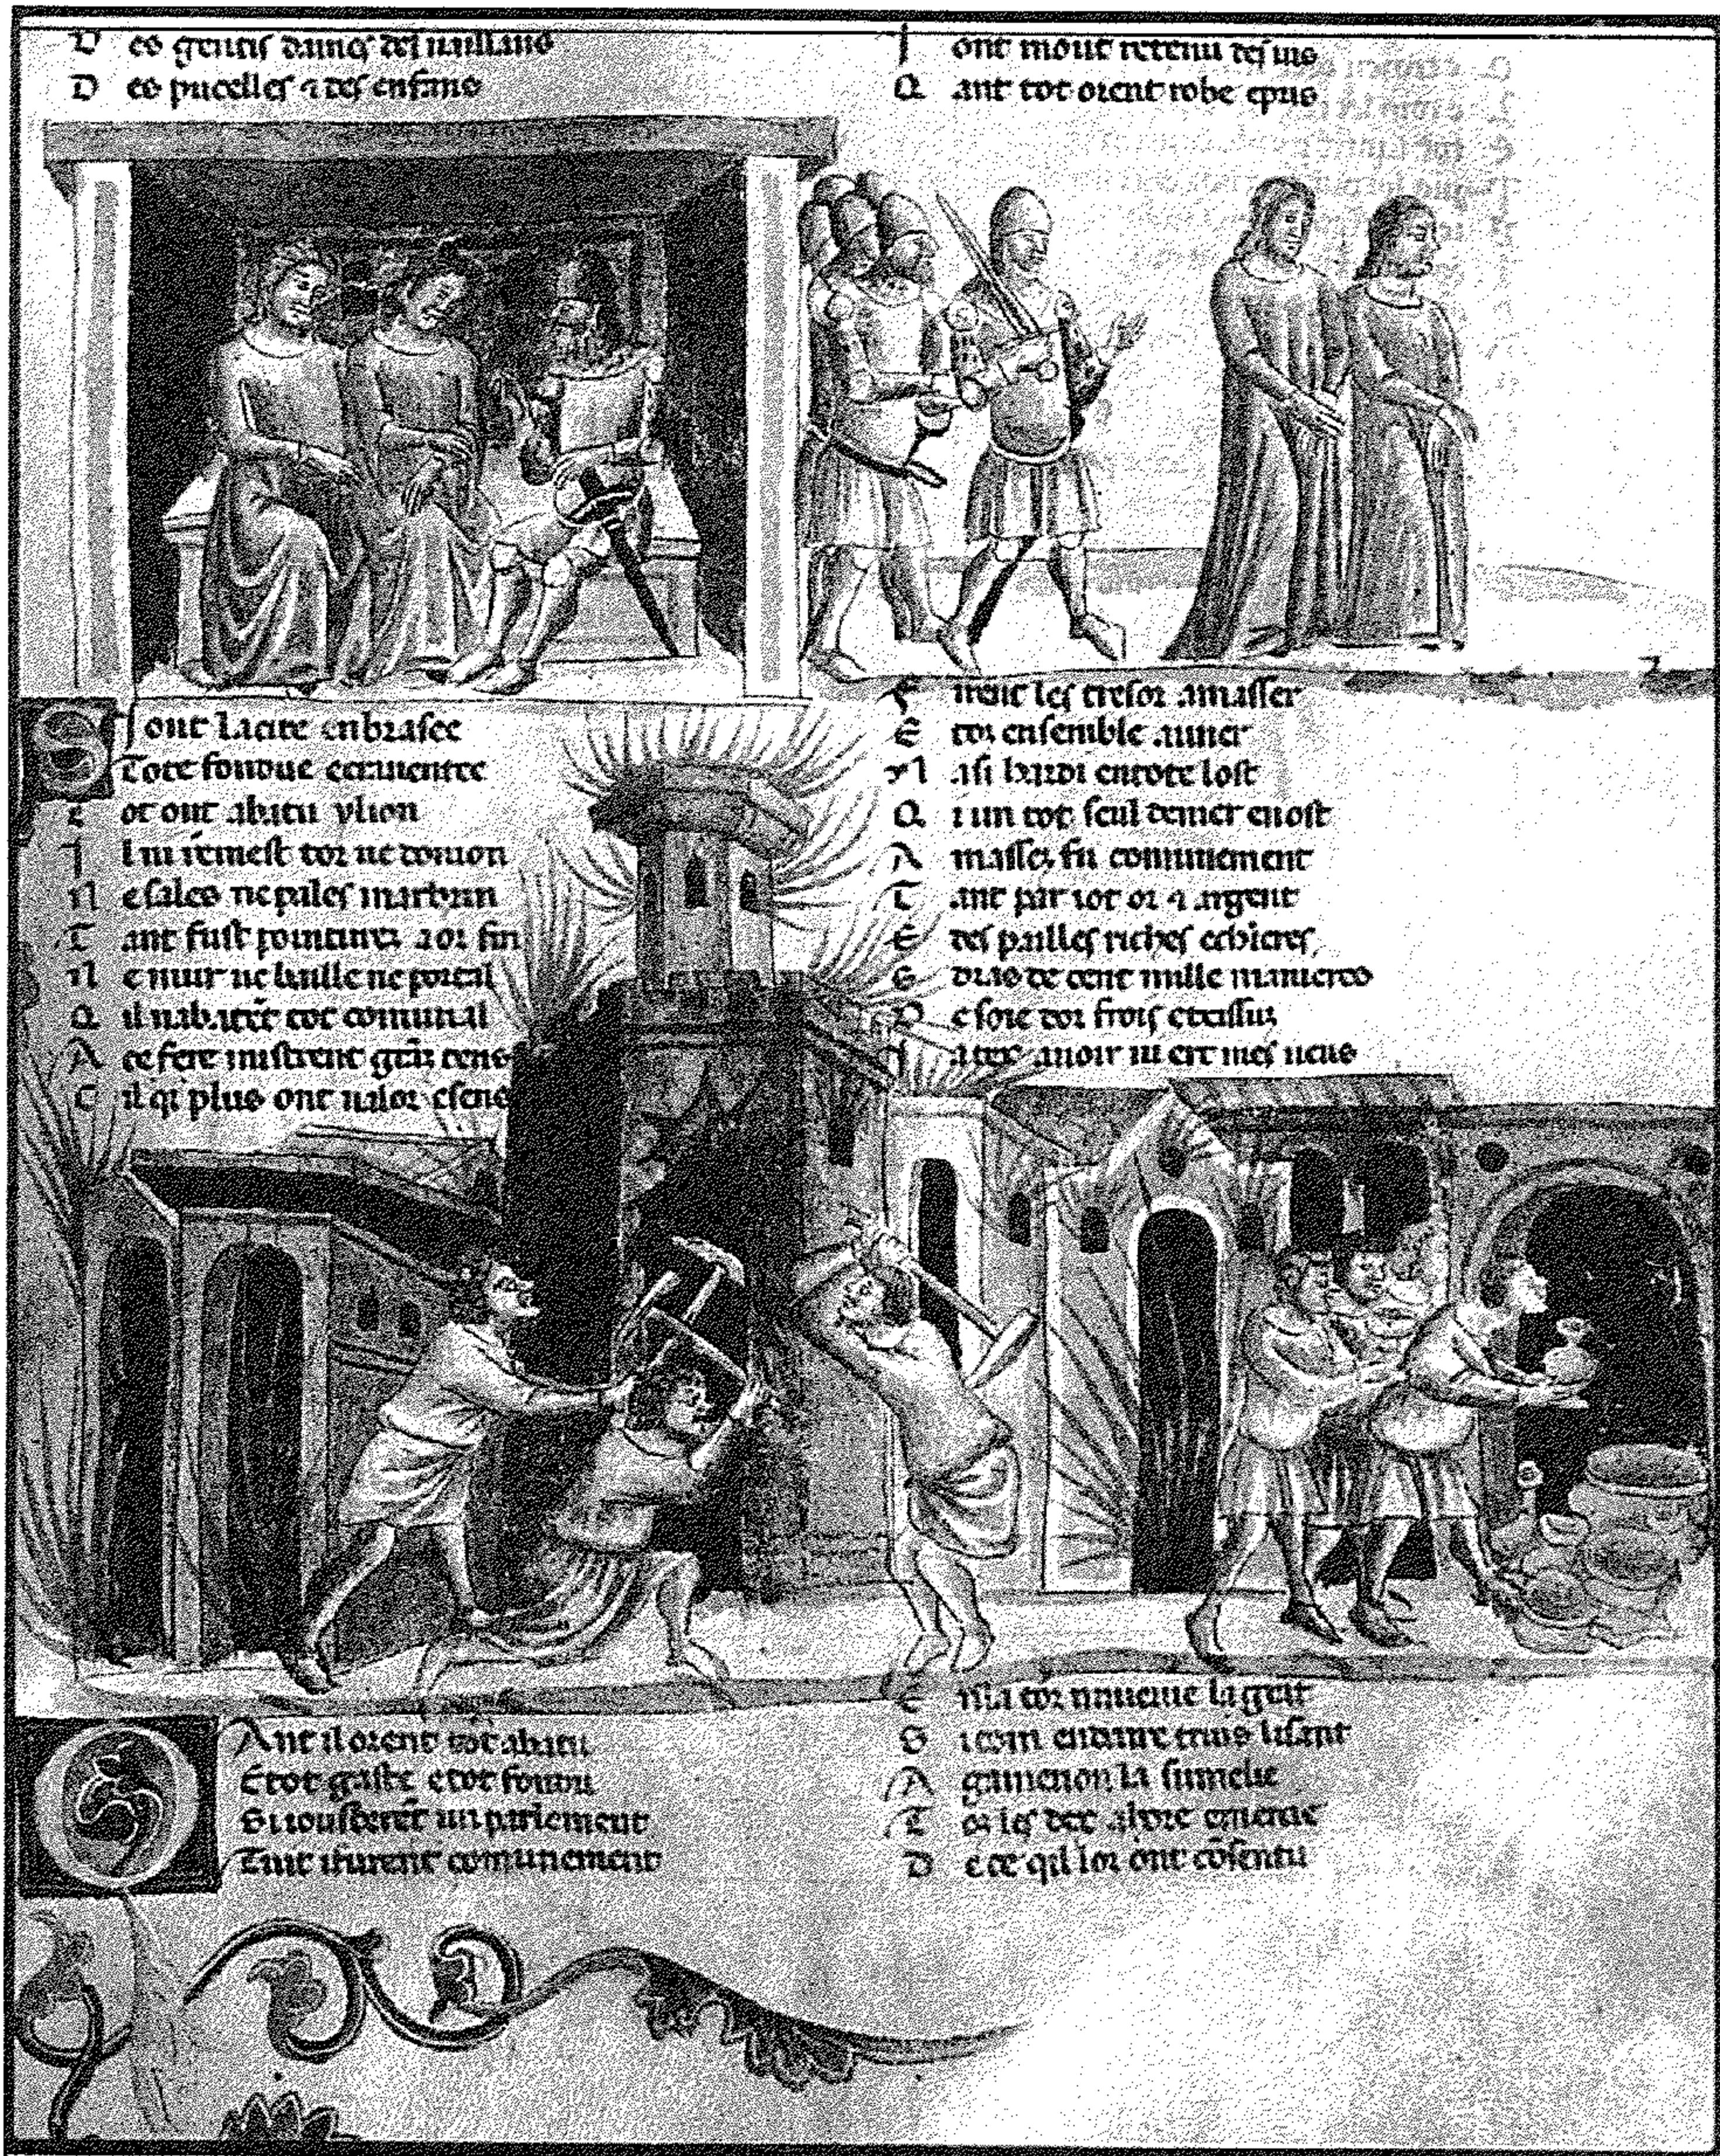 D es gentis dames des uaillans
D es pucelles ⁊ des enfans
S J ont la cite enbrasee
Tote fondue ecrauentee
E ot ont abatu ylion
J l ni remest tor ne donion
N e sales ne pales marbrin
T ant fust pointurez a or fin
N e mur ne baille ne portal
Q il nabatẽt tot comunal
A ce fere mistrent grãz tens
C il qi plus ont ualor esens
Q Ant il orent tot abatu
E tot gaste etot fondu
Si iousterẽt un parlement
Tuit ifurent comunement
J ont mout retenu des uis
Q ant tot orent robe epris
F irent les tresor amasser
E toz ensemble auner
N asi hardi entote lost
Q i un tot seul denier enost
A massez fu comunement
T ant par iot or ⁊ argent
E des pailles riches echieres
D ras de cent mille manieres
D e soie toz frois
auoir ni ert mes ueus
S icom endaire truis lisant
A gamenon la
D e ce qil lor ont cõsentu